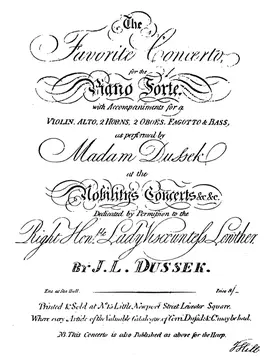 The
Favorite Concerto,
for the
Piano Forte.
with Accompaniments for a
VIOLIN, ALTO, 2 HORNS, 2 OBOES, FAGOTTO & BASS,
as performed by
Madam Dussek
at the
Nobility's Concerts &c &c.
Dedicated by Permission to the
Right Hon.ble Lady Viscountess Lowther
BY J. L. DUSSEK.
Ent. at Sta. Hall. Price 8/-
Printed & Sold at N.º 15 Little Newport Street Leicester Square.
Where every Article of the Valuable Catalogue of Corri, Dussek & C.º may be had.
NB. This Concerto is also Published as above for the Harp.